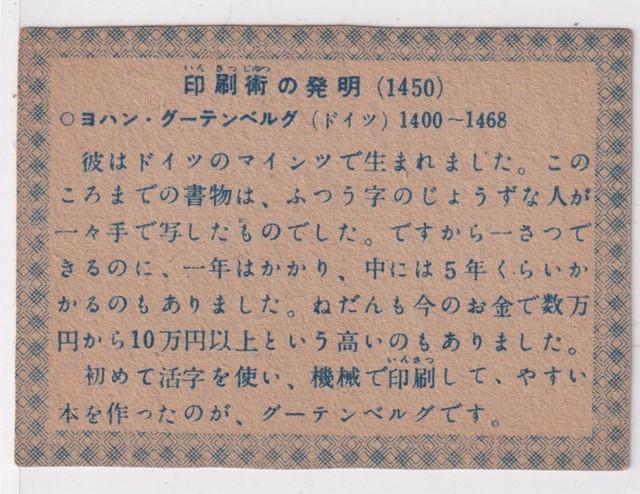 いんさつじゅつ
印刷術の発明(1450)
○ヨハン・グーテンベルグ(ドイツ)1400〜1468
彼はドイツのマインツで生まれました。この
ころまでの書物は、ふつう字のじょうずな人が
一々手で写したものでした。ですから一さつで
きるのに、一年はかかり、中には5年くらいか
かるのもありました。ねだんも今のお金で数万
円から10万円以上という高いのもありました。
いんさつ
初めて活字を使い、機械で印刷して、やすい
本を作ったのが、グーテンベルグです。